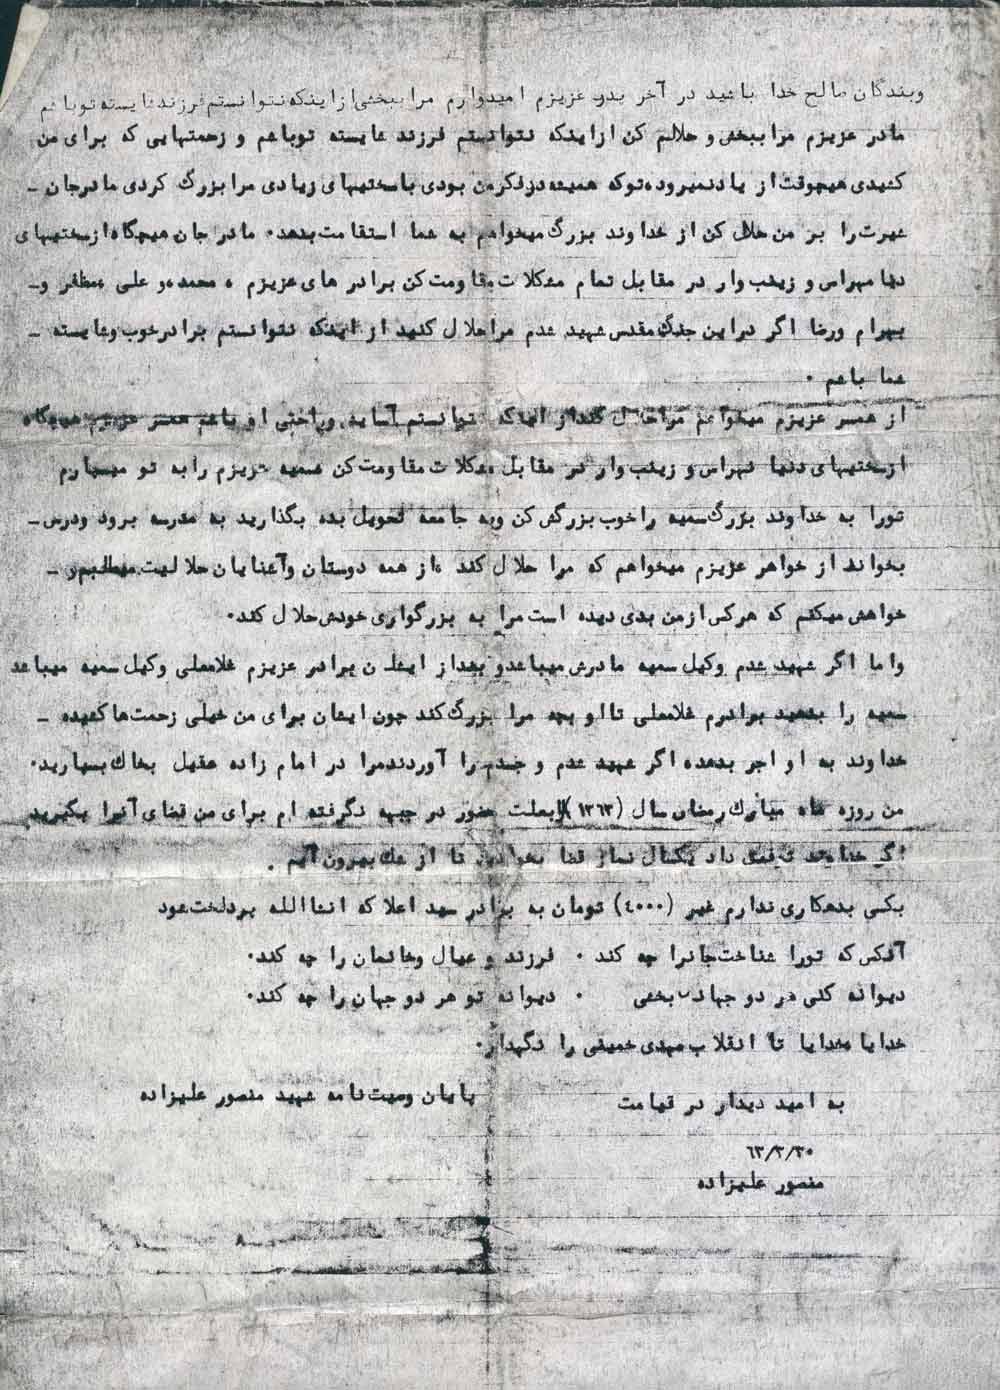 وبندگان صالح خدا باشید در آخر پدر عزیزم امیدوارم مرا ببخشی از اینکه نتوانستم فرزند شایسته تو باشم
مادر عزیزم مرا ببخش و حلالم کن از اینکه نتوانستم فرزند شایسته تو باشم و زحمتهایی که برای من
کشیدی هیچوقت از یادنمیرود توکه همیشه در فکر من بودی با سختیهای زیادی مرا بزرگ کردی مادرجان -
شیرت را بر من حلال کن از خداوند بزرگ میخواهم به شما استقامت بدهد. مادر جان هیچگاه از سختیهای
دنیا مهراس و زینب وار در مقابل تمام مشکلات مقاومت کن برادر های عزیزم ، محمد و علی ، مظفر و -
بهرام ورضا اگر دراین جنگ مقدس شهید شدم مرا حلال کنید از اینکه نتوانستم برادر خوب وشایسته -
شما باشم .
از همسر عزیزم میخواهم مرا حلال کند از اینکه نتوانستم آسایش و راحتی او باشم همسر عزیزم هیچگاه
ازسختیهای دنیا نهراس و زینب وار در مقابل مشکلات مقاومت کن سمیه عزیزم را به تو میسپارم
تورا به خداوند بزرگ سمیه را خوب بزرگش کن وبه جامعه تحویل بده بگذارید به مدرسه برود ودرس -
بخواند از خواهر عزیزم میخواهم که مرا حلال کند ، از همه دوستان وآشنایان حلالیت میطلبم و -
خواهش میکنم که هرکس از من بدی دیده است مرا به بزرگواری خودش حلال کند.
واما اگر شهید شدم وکیل سمیه مادرش میباشد و بعداز ایشان برادر عزیزم غلامعلی وکیل سمیه میباشد
سمیه را بدهید برادرم غلامعلی تا او بچه مرا بزرگ کند چون ایشان برای من خیلی زحمت ها کشیده -
خداوند به او اجر بدهد اگر شهید شدم و جسدم را آوردند مرا در امام زاده عقیل بخاک بسپارید.
من روزه ماه مبارک رمضان سال (۱۳۶۳) را بعلت حضور در جبهه نگرفته ام برای من قضای آنرا بگیرید
اگر خداوند توفیق داد یکسال نماز قضا بخوانید تا از شک بیرون آیم .
بکسی بدهکاری ندارم غیر (۴۰۰۰) تومان به برادر سید اعلا که انشاالله پرداخت شود
آنکس که تورا شناخت جانرا چه کند . فرزند و عیال وخانمان را چه کند.
دیوانه کنی هر دو جهانش بخشی . دیوانه تو هر دو جهان را چه کند.
خدایا خدایا تا انقلاب مهدی خمینی را نگهدار.
به امید دیدار در قیامت
پایان وصیت نامه شهید منصور علیزاده
۶۳/۳/۳۰
منصور علیزاده